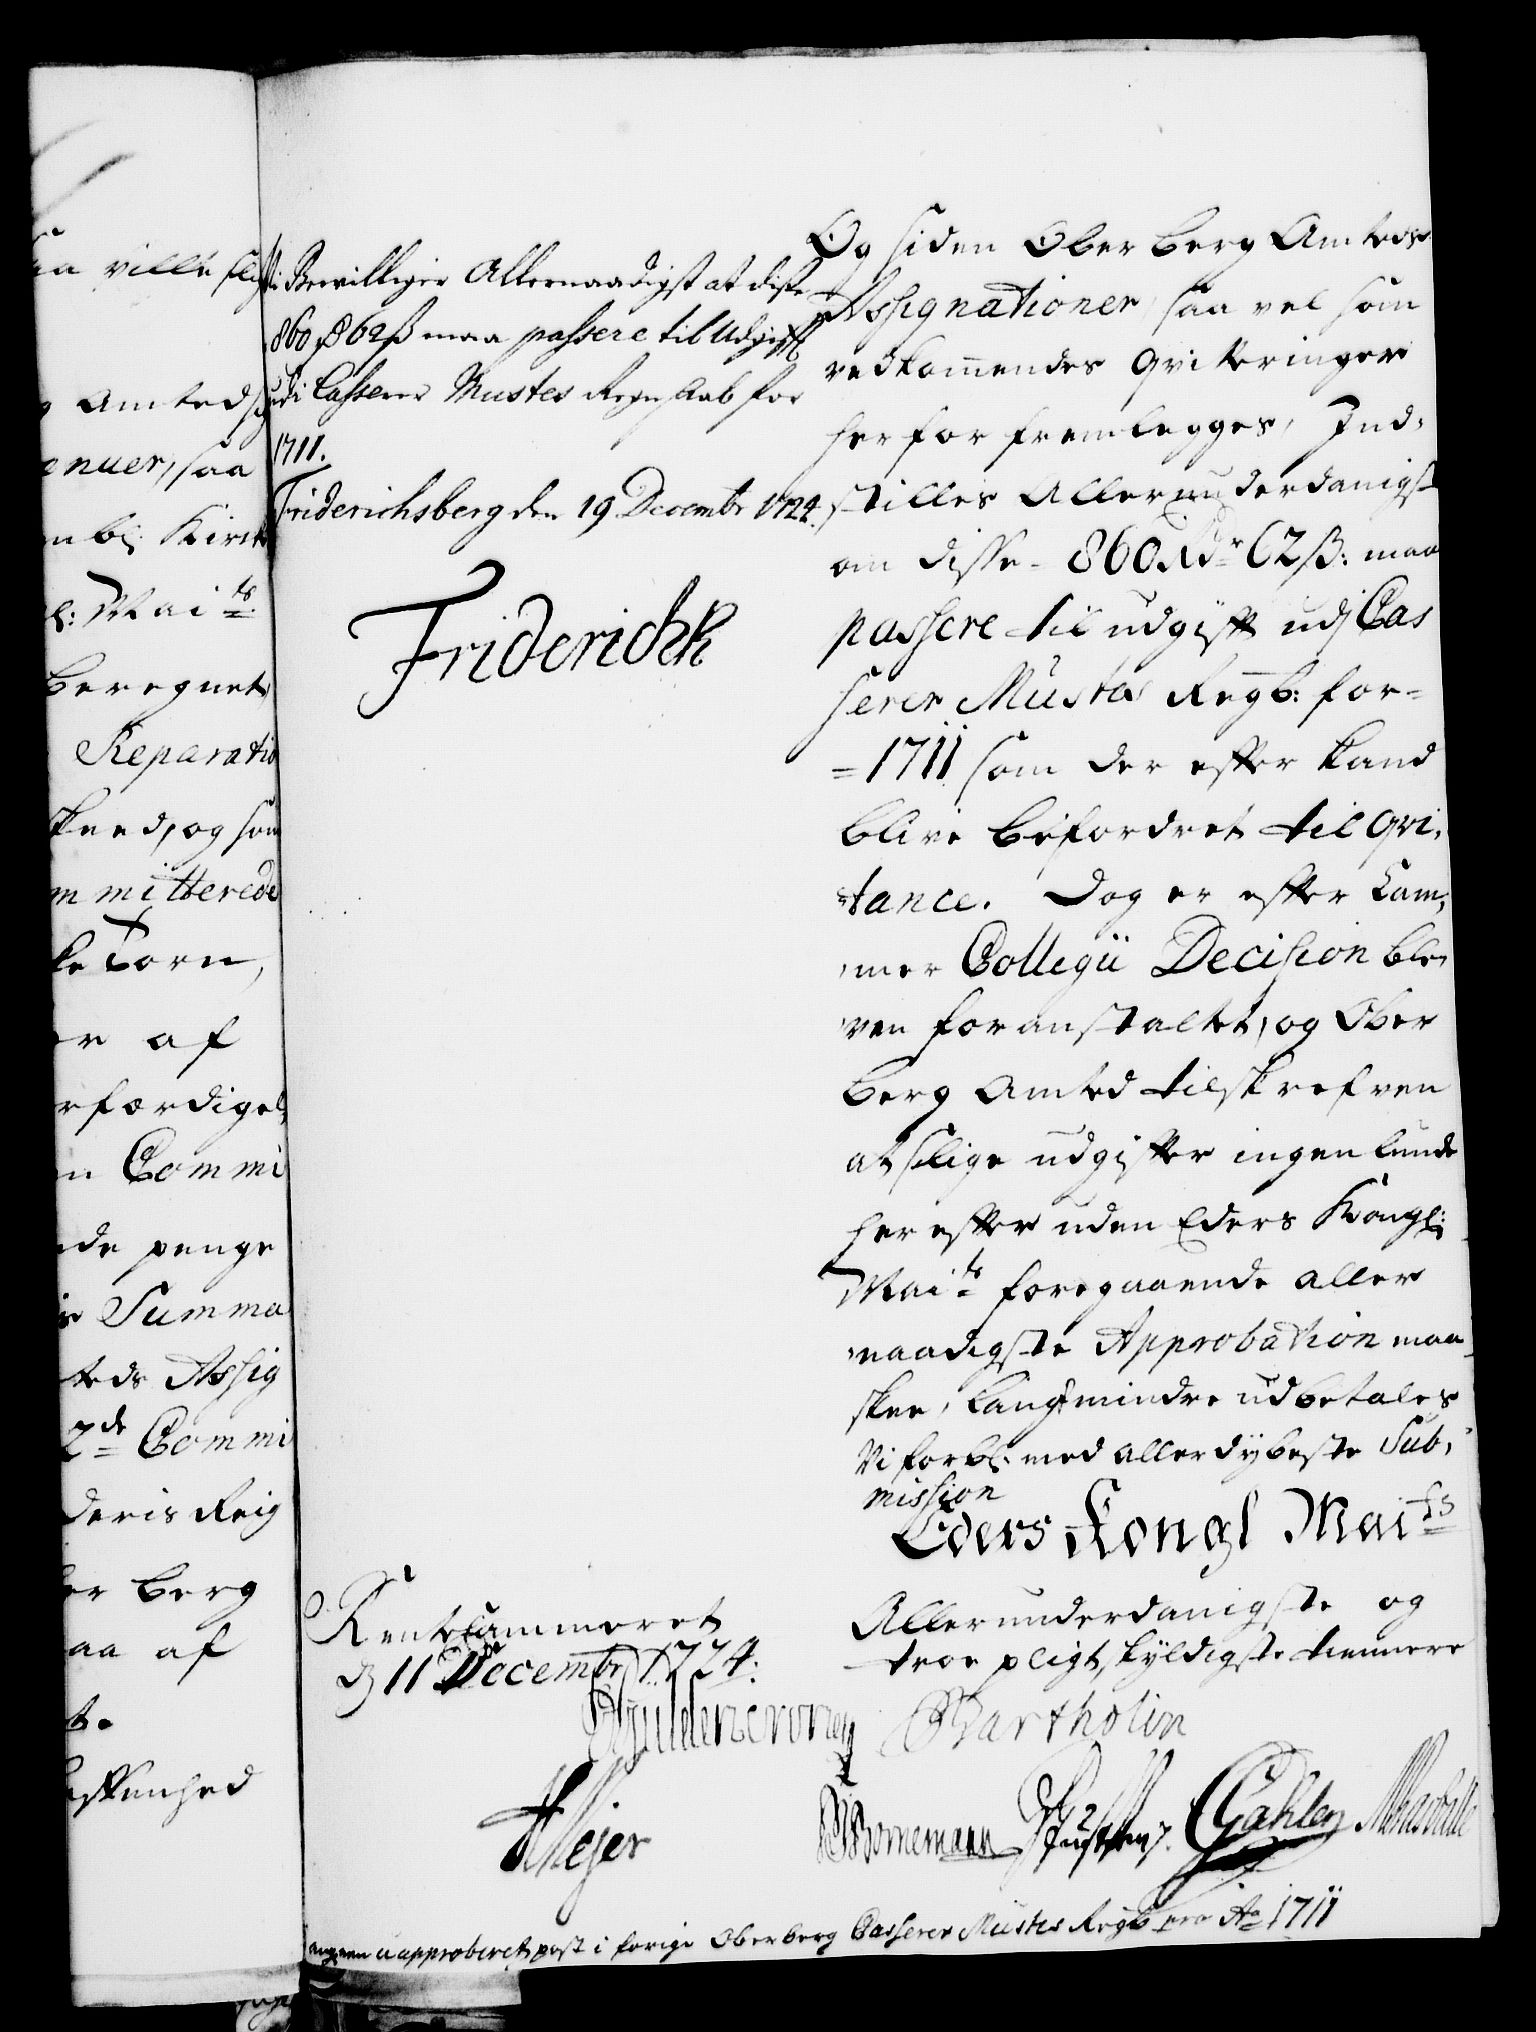 aa ville slig
Amted
nuer, saa
mbl: Kirck
l: Mai ts
beregnet
Reparatio
skeed, og som
mmitterede
ke Torn,
er af
rfærdigel
n Commi
nde penge
Summa
teds Assig
2de Commi
deris Reig
er berg
aa af
Vi Bevilliger Allernaadigst at disse
860 Rd 62 ß maa passere til Udgifft
udi Casserer Mustes Regnskab for
1711.
Friderichsberg den 19 Decembr 1724.
Friderich R
Og siden Ober berg Amteds
Assignationer, saa vel som
vedkommendes Qvitteringer
herfor fremlegges, Ind-
stilles Allerunderdanigst
om disse - 860 Rdr 62 ß: maa
passere til udgifft udj Cas
serer Mustes Regb: for=
=1711 som der effter kand
blive befordret til Qvi,
tance. Dog er effter Cam,
mer Collegii Decision ble
ven foranstaltet, og Ober
berg Amted tilskrefven
at slige udgiffter ingenlunde
hereffter uden Eders Kongl:
Mai ts foregaaende aller
naadigste Approbation maa
skee, langt mindre udbetales
Vi forbl: med allerdybeste Sub,
mission
Eders Kongl Mai ts
Allerunderdanigste og
troe pligtskyldigste tiennere
Rentecammeret
d 11 Decembr 1724.
Güldencrone
Bartholin
Mejer
Bornemann
CGahler
angaaen uapproberet post i forige Oberberg Casserer Mustes Regb pro Ao 1711